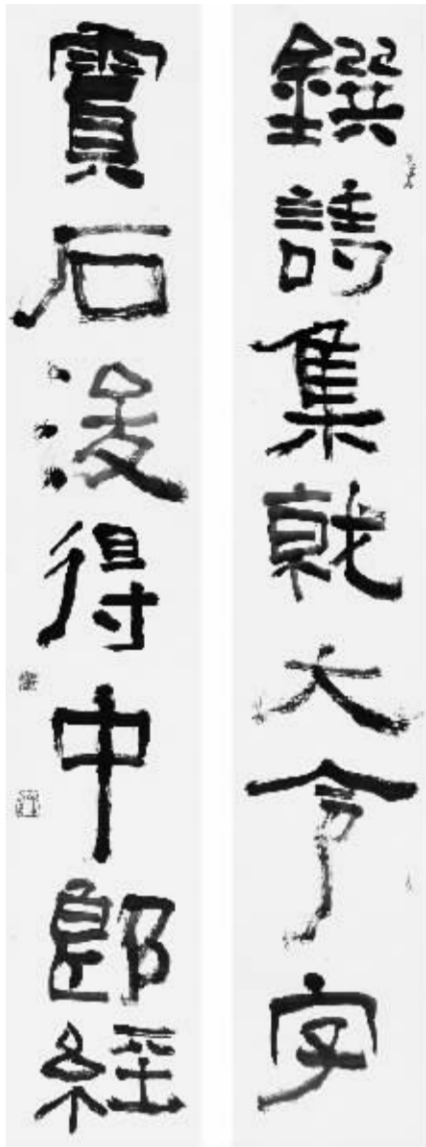 鐉詩集就大令字
寶石浚得中郎經